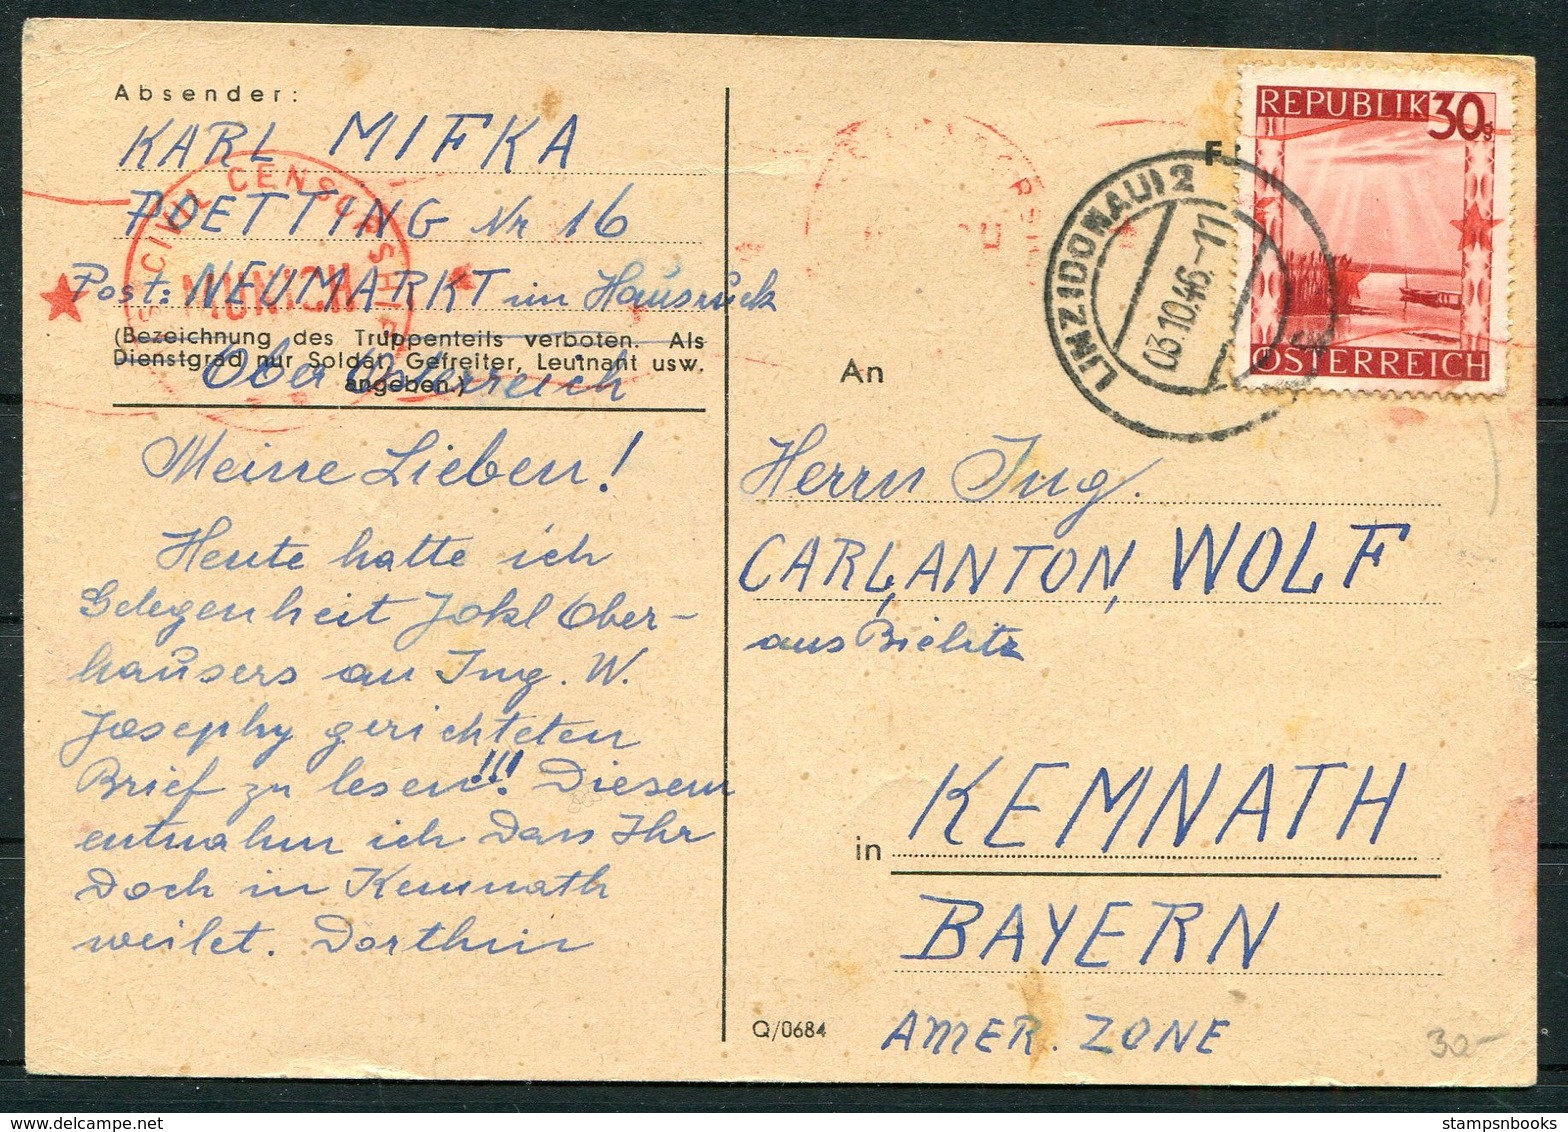 Absender:
KARL MIFKA
POETTING Nr 16
Post: NEUMARKT im Hausruck
(Bezeichnung des Truppenteils verboten. Als
Dienstgrad nur Soldat, Gefreiter, Leutnant usw.
angeben.)
Ober Österreich
CIVIL CENSORSHIP
MUNICH
Meine Lieben!
Heute hatte ich
Gelegenheit Jokl Ober-
hausers an Ing. W.
Josephy gerichteten
Brief zu lesen!!! Diesem
entnahm ich Dass Ihr
Doch in Kemnath
weilet. Dorthin
F
LINZ (DONAU) 2
03.10.46.-17
REPUBLIK 30g
ÖSTERREICH
An
Herrn Ing.
CARL, ANTON, WOLF
aus Bielitz
in KEMNATH
BAYERN
AMER. ZONE
Q/0684
30-
stampsnbooks
www.delcampe.net